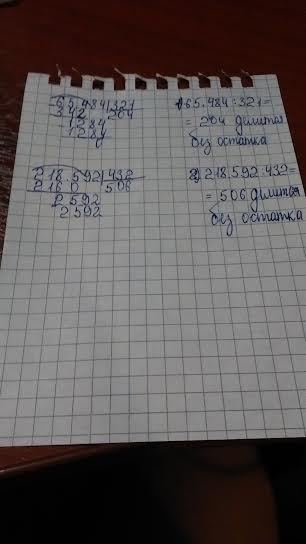 65.484|321
642 204
1284
1284
0
218.592|432
2160 506
2592
2592
1) 65.484:321=
= 204 делится
без остатка
2) 218.592:432=
= 506 делится
без остатка